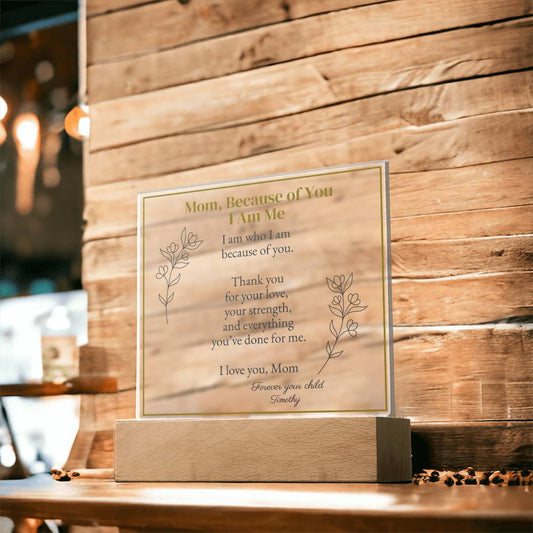 Mom, Because of You
I Am Me
I am who I am
because of you.
Thank you
for your love,
your strength,
and everything
you've done for me.
I love you, Mom
Forever your child
Timothy